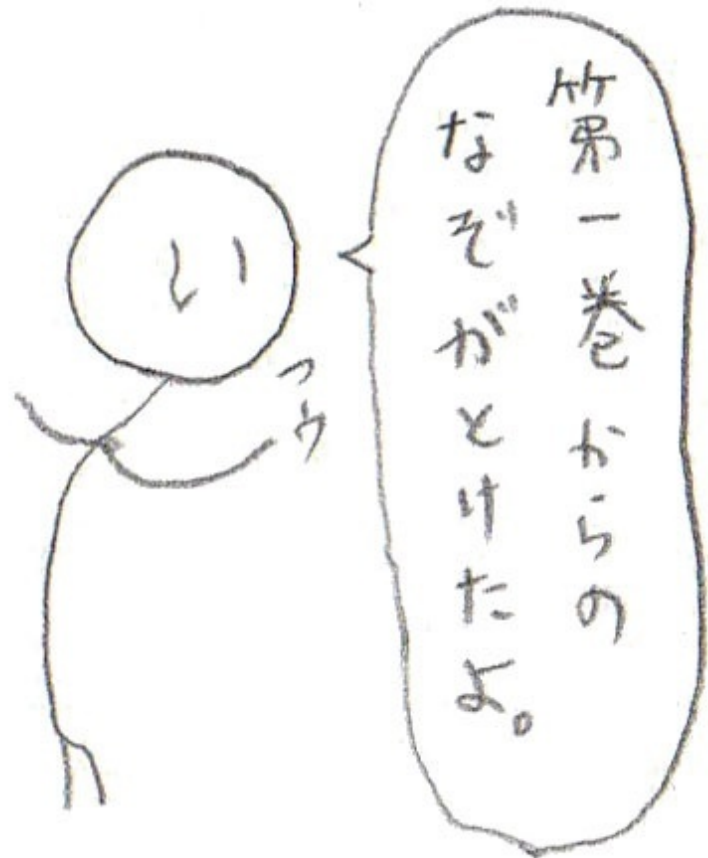 第一巻からの
なぞがとけたよ。